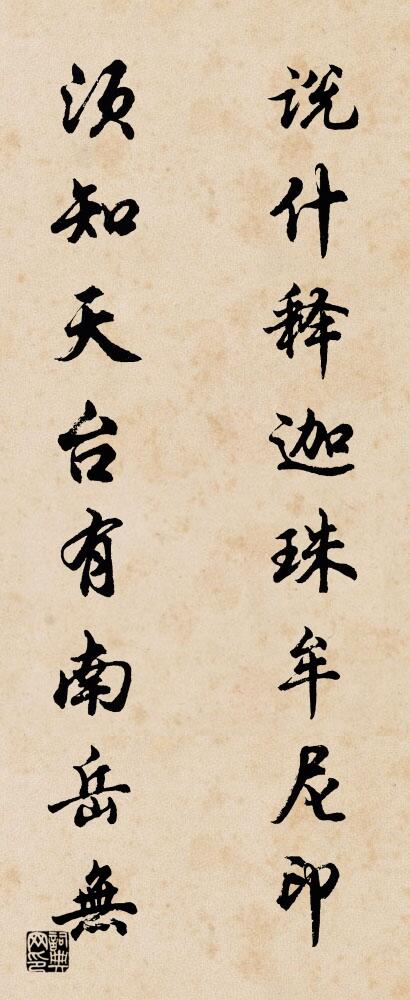 说什释迦珠牟尼印
须知天台有南岳無
詞典
网印